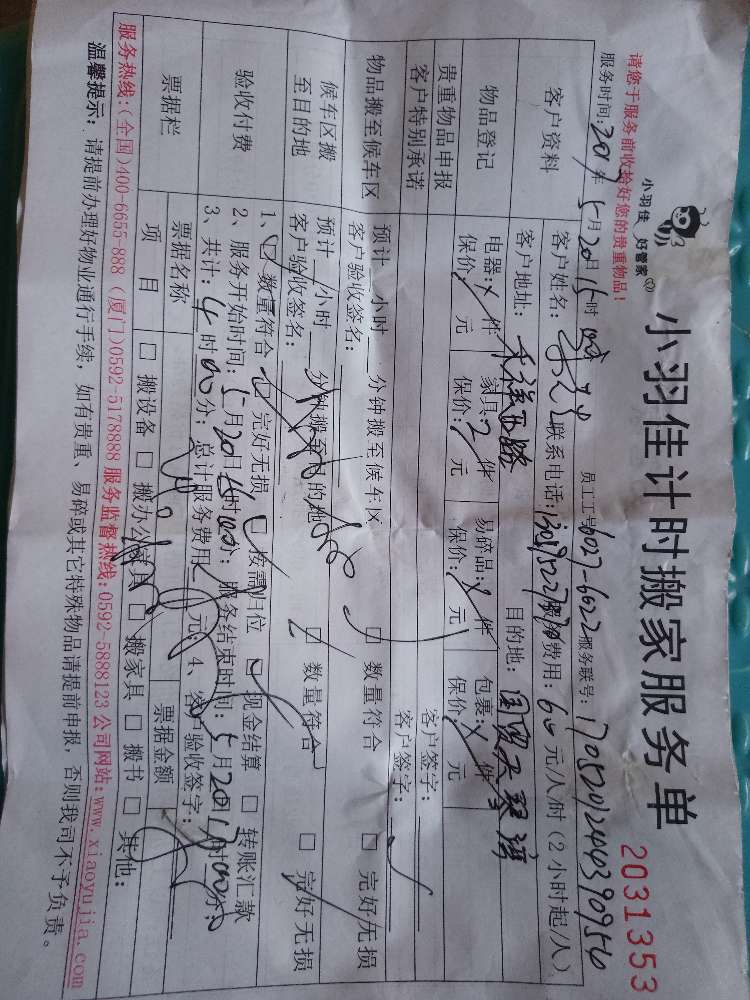 小羽佳 好管家
小羽佳计时搬家服务单
2031353
请您于服务前收拾好您的贵重物品！
员工工号: 6027-6022 服务联号:
服务时间: 2017年5月20日15时00分
客户资料
客户姓名: 联系电话: 费用: 60元/人/时(2小时起/人)
客户地址: 目的地:
物品登记
电器: 件 家具: 2件 易碎品: 件 包裹: 件
保价: 元 保价: 元 保价: 元 保价: 元
贵重物品申报
客户签字:
客户特别承诺
客户签字:
物品搬至候车区
预计 小时 分钟搬至候车区 □ 数量符合 □ 完好无损
客户验收签名:
候车区搬至目的地
预计 小时 分钟搬至目的地 □ 数量符合 □ 完好无损
客户验收签名:
验收付费
1、□ 数量符合 □ 完好无损 □ 按需归位 □ 现金结算 □ 转账汇款
2、服务开始时间: 5月20日15时00分; 服务结束时间: 5月20日 时 分;
3、共计: 4时00分; 总计服务费用 元; 4、客户验收签字:
票据栏
票据名称 票据金额
项目 □ 搬设备 □ 搬办公家具 □ 搬家具 □ 搬书 □ 其他:
服务热线:(全国)400-6655-888 (厦门)0592-5178888 服务监督热线:0592-5888123 公司网站:www.xiaoyujia.com
温馨提示: 请提前办理好物业通行手续, 如有贵重、易碎或其它特殊物品请提前申报, 否则我司不予负责。